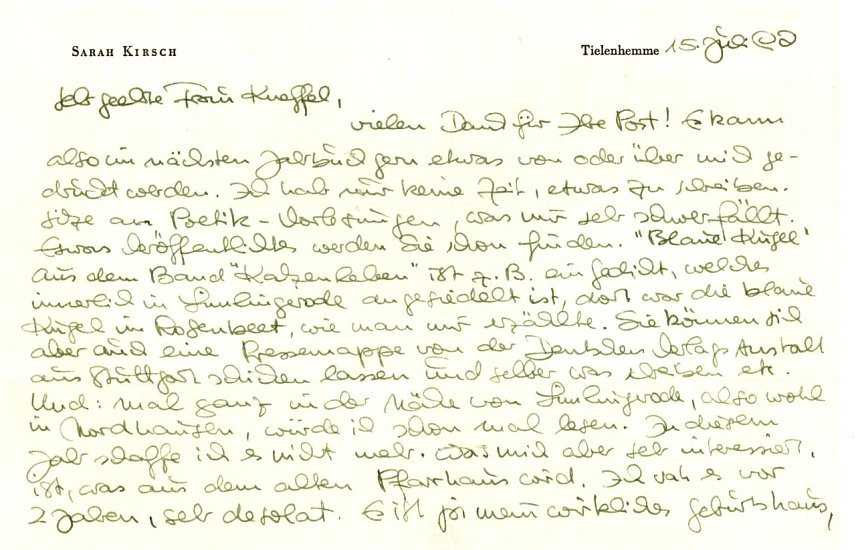 SARAH KIRSCH
Tielenhemme 15. Juli
Sehr geehrte Frau Kneffel,
vielen Dank für Ihre Post! Es kann
also im nächsten Jahrbuch gern etwas von oder über mich ge-
druckt werden. Ich hab nur keine Zeit, etwas zu schreiben.
Sitze an Poetik-Vorlesungen, was mir sehr schwer fällt.
Etwas Veröffentlichtes werden Sie schon finden. "Blaue Kugel"
aus dem Band "Katzenleben" ist z. B. ein Gedicht, welches
innerlich in Limlingerode angesiedelt ist, dort war die blaue
Kugel im Rosenbeet, wie man mir erzählte. Sie können sich
aber auch eine Pressemappe von der Deutschen Verlags Anstalt
aus Stuttgart schicken lassen und selber was schreiben etc.
Und: mal ganz in der Nähe von Limlingerode, also wohl
in Nordhausen, würde ich schon mal lesen. In diesem
Jahr schaffe ich es nicht mehr. Was mich aber sehr interessiert,
ist, was aus dem alten Pfarrhaus wird. Ich sah es vor
2 Jahren, sehr desolat. Es ist ja mein wirkliches Geburtshaus,